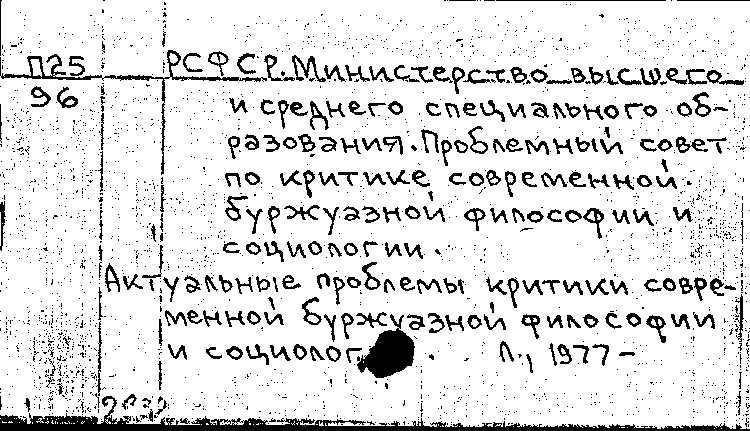 П25 РСФСР. Министерство высшего
96 и среднего специального об-
разования. Проблемный совет
по критике современной
буржуазной философии и
социологии.
Актуальные проблемы критики совре-
менной буржуазной философии
и социолог . Л., 1977 -